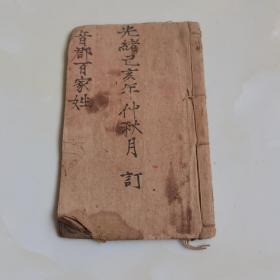 光緒己亥年仲秋月 訂
音郡百家姓